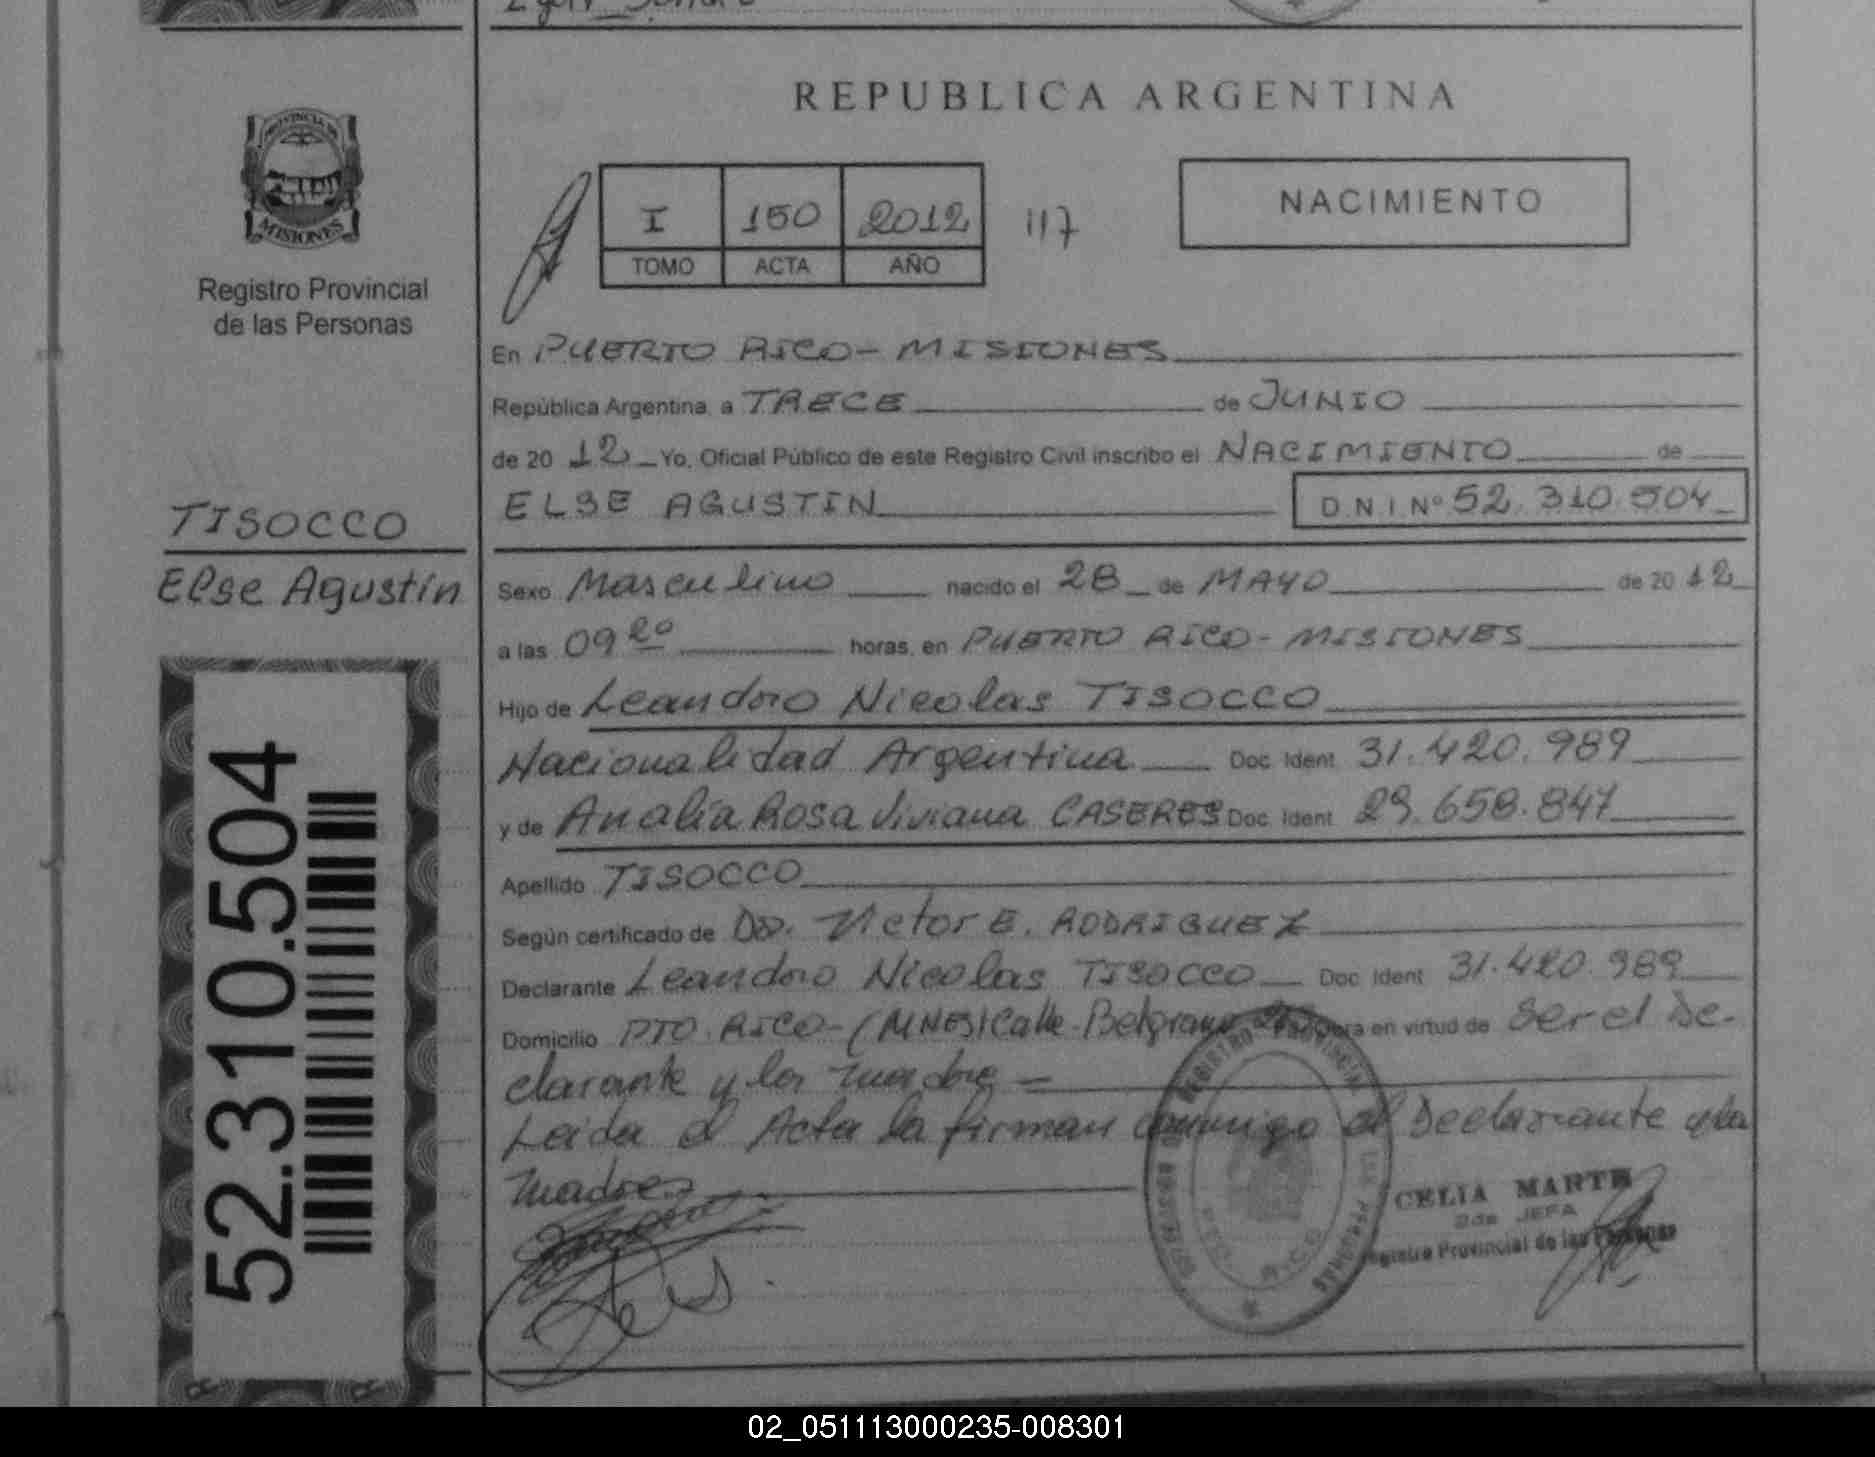 REPUBLICA ARGENTINA
PROVINCIA DE
MISIONES
Registro Provincial
de las Personas
I 150 2012 117
TOMO ACTA AÑO
NACIMIENTO
En PUERTO RICO - MISIONES
República Argentina, a TRECE de JUNIO
de 20 12 Yo, Oficial Público de este Registro Civil inscribo el NACIMIENTO de
ELSE AGUSTIN D.N.I. Nº 52.310.504
TISOCCO
Else Agustín
Sexo Masculino nacido el 28 de MAYO de 20 12
a las 09 20 horas, en PUERTO RICO - MISIONES
Hijo de Leandro Nicolas TISOCCO
Nacionalidad Argentina Doc. Ident. 31.420.989
y de Analía Rosa Viviana CASERES Doc. Ident. 29.658.847
Apellido TISOCCO
Según certificado de Dr. Victor E. RODRIGUEZ
Declarante Leandro Nicolas TISOCCO Doc. Ident. 31.420.989
Domicilio PTO. RICO - (MNES) Calle Belgrano en virtud de Ser el De-
clarante y la madre =
Leida el Acta la firman conmigo el Declarante y la
madre
CELIA MARTE
2da JEFA
Registro Provincial de las Personas
52.310.504
02_051113000235-008301